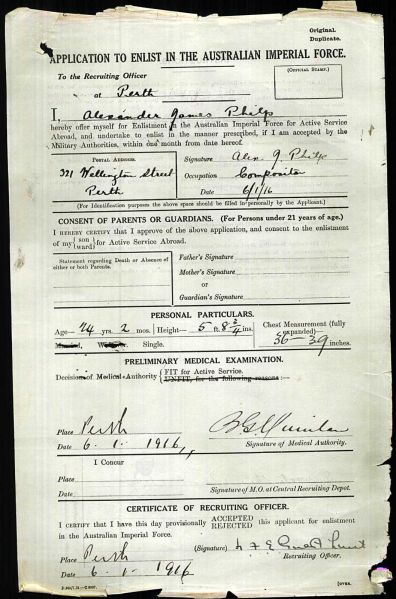 Original.
Duplicate.
APPLICATION TO ENLIST IN THE AUSTRALIAN IMPERIAL FORCE.
To the Recruiting Officer
(OFFICIAL STAMP.)
at Perth
I, Alexander James Philp
hereby offer myself for Enlistment in the Australian Imperial Force for Active Service
Abroad, and undertake to enlist in the manner prescribed, if I am accepted by the
Military Authorities, within one month from date hereof.
POSTAL ADDRESS.
321 Wellington Street
Perth
Signature Alex J. Philp
Occupation Compositor
Date 6/1/16
(For Identification purposes the above space should be filled in personally by the Applicant.)
CONSENT OF PARENTS OR GUARDIANS. (For Persons under 21 years of age.)
I HEREBY CERTIFY that I approve of the above application, and consent to the enlistment
of my (son ward) for Active Service Abroad.
Statement regarding Death or Absence of
either or both Parents.
Father's Signature
Mother's Signature
or
Guardian's Signature
PERSONAL PARTICULARS.
Age— 24 yrs. 2 mos. Height— 5 ft. 8 3/4 ins.
Chest Measurement (fully
expanded)—
36-39 inches.
Married, Single.
PRELIMINARY MEDICAL EXAMINATION.
Decision of Medical Authority { FIT for Active Service.
UNFIT, for the following reasons :—
Place Perth
Date 6. 1. 1916,
Signature of Medical Authority.
I Concur
Place
Date
Signature of M.O. at Central Recruiting Depot.
CERTIFICATE OF RECRUITING OFFICER.
I CERTIFY that I have this day provisionally ACCEPTED REJECTED this applicant for enlistment
in the Australian Imperial Force.
Place Perth
(Signature)
Recruiting Officer.
Date 6. 1. 1916
[OVER.